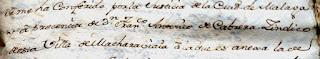 se me ha Conferido por la Justicia de la Ciud de Malaga
a procuencia de Dn Franco Antonio de Cabrera Sindico
desta Villa de Macharaviaia a la que es anexa la de